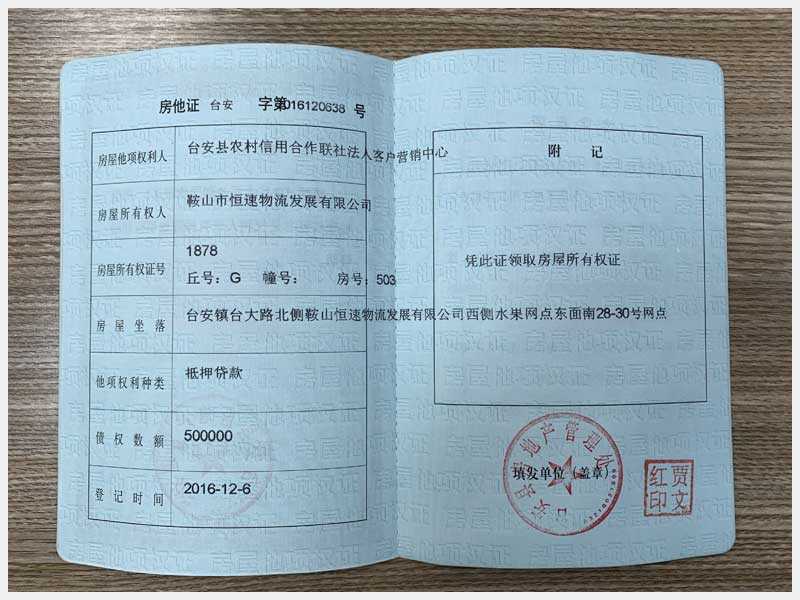 房他证 台安 字第2016120638 号
房屋他项权利人 台安县农村信用合作联社法人客户营销中心
房屋所有权人 鞍山市恒速物流发展有限公司
房屋所有权证号 1878
丘号：G 幢号： 房号：503
房屋坐落 台安镇台大路北侧鞍山恒速物流发展有限公司西侧水果网点东面南28-30号网点
他项权利种类 抵押贷款
债权数额 500000
登记时间 2016-12-6
附 记
凭此证领取房屋所有权证
台安县房地产管理处
填发单位（盖章）
贾文红印